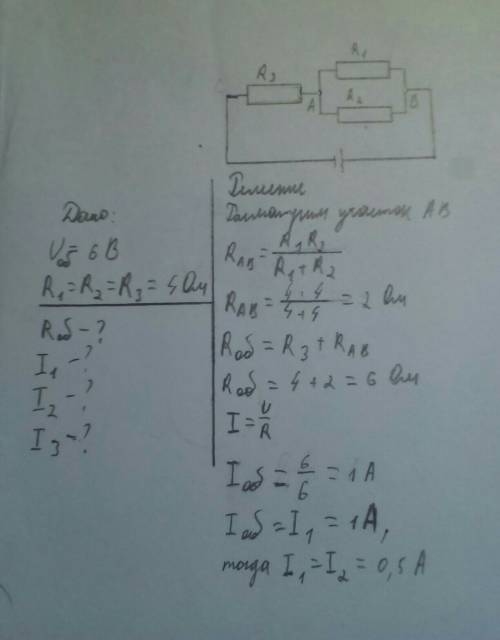 R₁
R₃
A
R₂
B
Дано:
Uоб = 6 В
R₁ = R₂ = R₃ = 4 Ом
Rоб - ?
I₁ - ?
I₂ - ?
I₃ - ?
Решение
Рассмотрим участок AB
R_AB = R₁R₂ / R₁+R₂
R_AB = 4·4 / 4+4 = 2 Ом
Rоб = R₃ + R_AB
Rоб = 4 + 2 = 6 Ом
I = U/R
Iоб = 6/6 = 1 А
Iоб = I₁ = 1А,
тогда I₁ = I₂ = 0,5 А